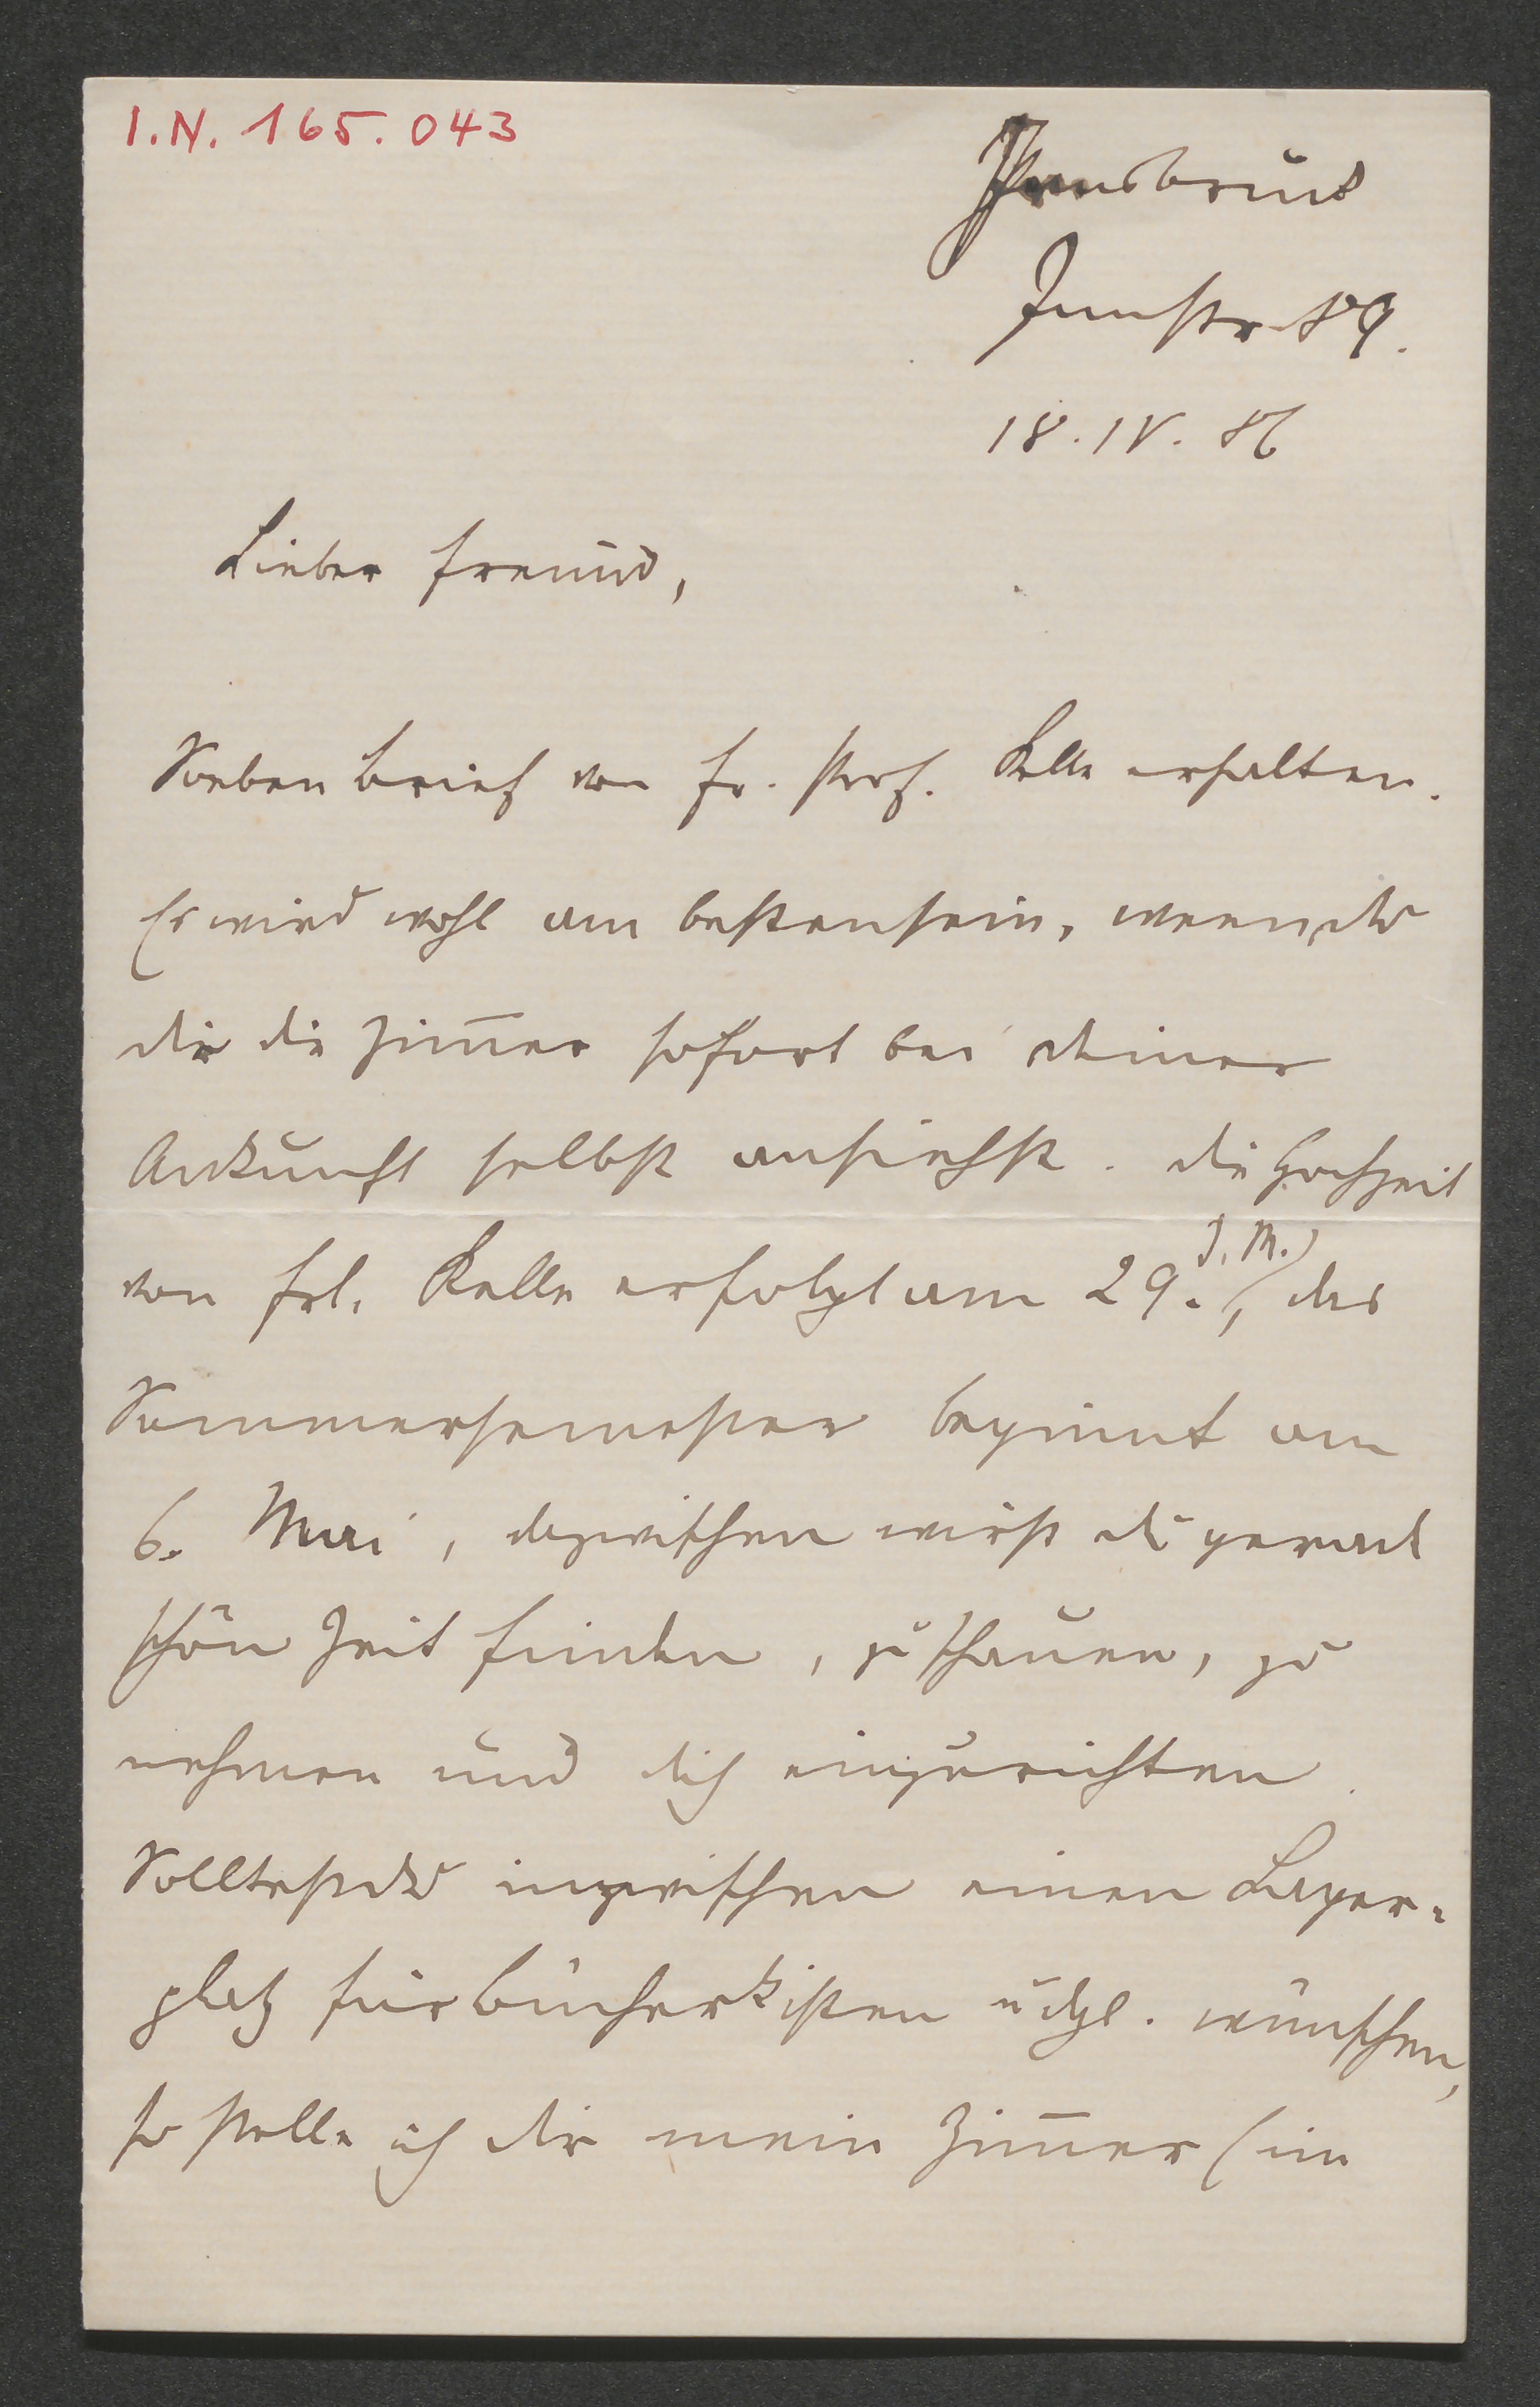 I.N. 165.043
Innsbruck
Innstr 89.
18.IV. 86
Lieber Freund,
Soeben Brief von Fr. Prof. Kelle erhalten.
Es wird wohl am besten sein, wenn du
dir die Zim̅er sofort bei deiner
Ankunft selbst ansiehst. Die Hochzeit
von Frl. Kelle erfolgt am 29. d. M., das
Sommersemester beginnt am
6. Mai, dazwischen wirst du gerad
schön Zeit finden, zu schauen, zu
nehmen und dich einzurichten.
Solltest du inzwischen einen Lager-
platz für Bücherkisten u dgl. wünschen,
so stelle ich dir mein Zim̅er (im